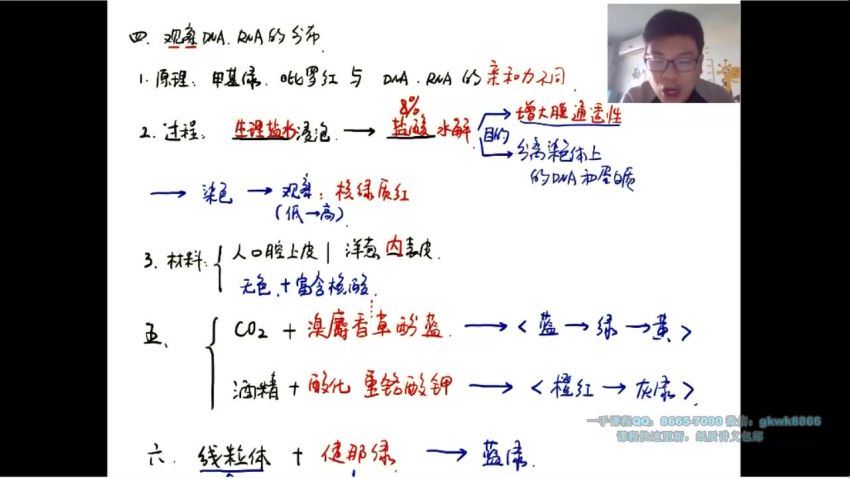 四. 观察DNA、RNA的分布
1. 原理: 甲基绿、吡罗红与 DNA、RNA的亲和力不同
2. 过程: 生理盐水浸泡 → 8% 盐酸水解 目的 < → 增大膜通透性
→ 分离染色体上的DNA和蛋白质
→ 染色 → 观察: 核绿质红
(低→高)
3. 材料: { 人口腔上皮 | 洋葱内表皮
无色 + 富含核酸
五、 { CO2 + 溴麝香草酚蓝 → <蓝→绿→黄>
酒精 + 酸化重铬酸钾 → <橙红→灰绿>
一手课程QQ：8665-7090 微信：gkwk8866
课程快速更新，纸质讲义包邮
六. 线粒体 + 健那绿 → 蓝绿.